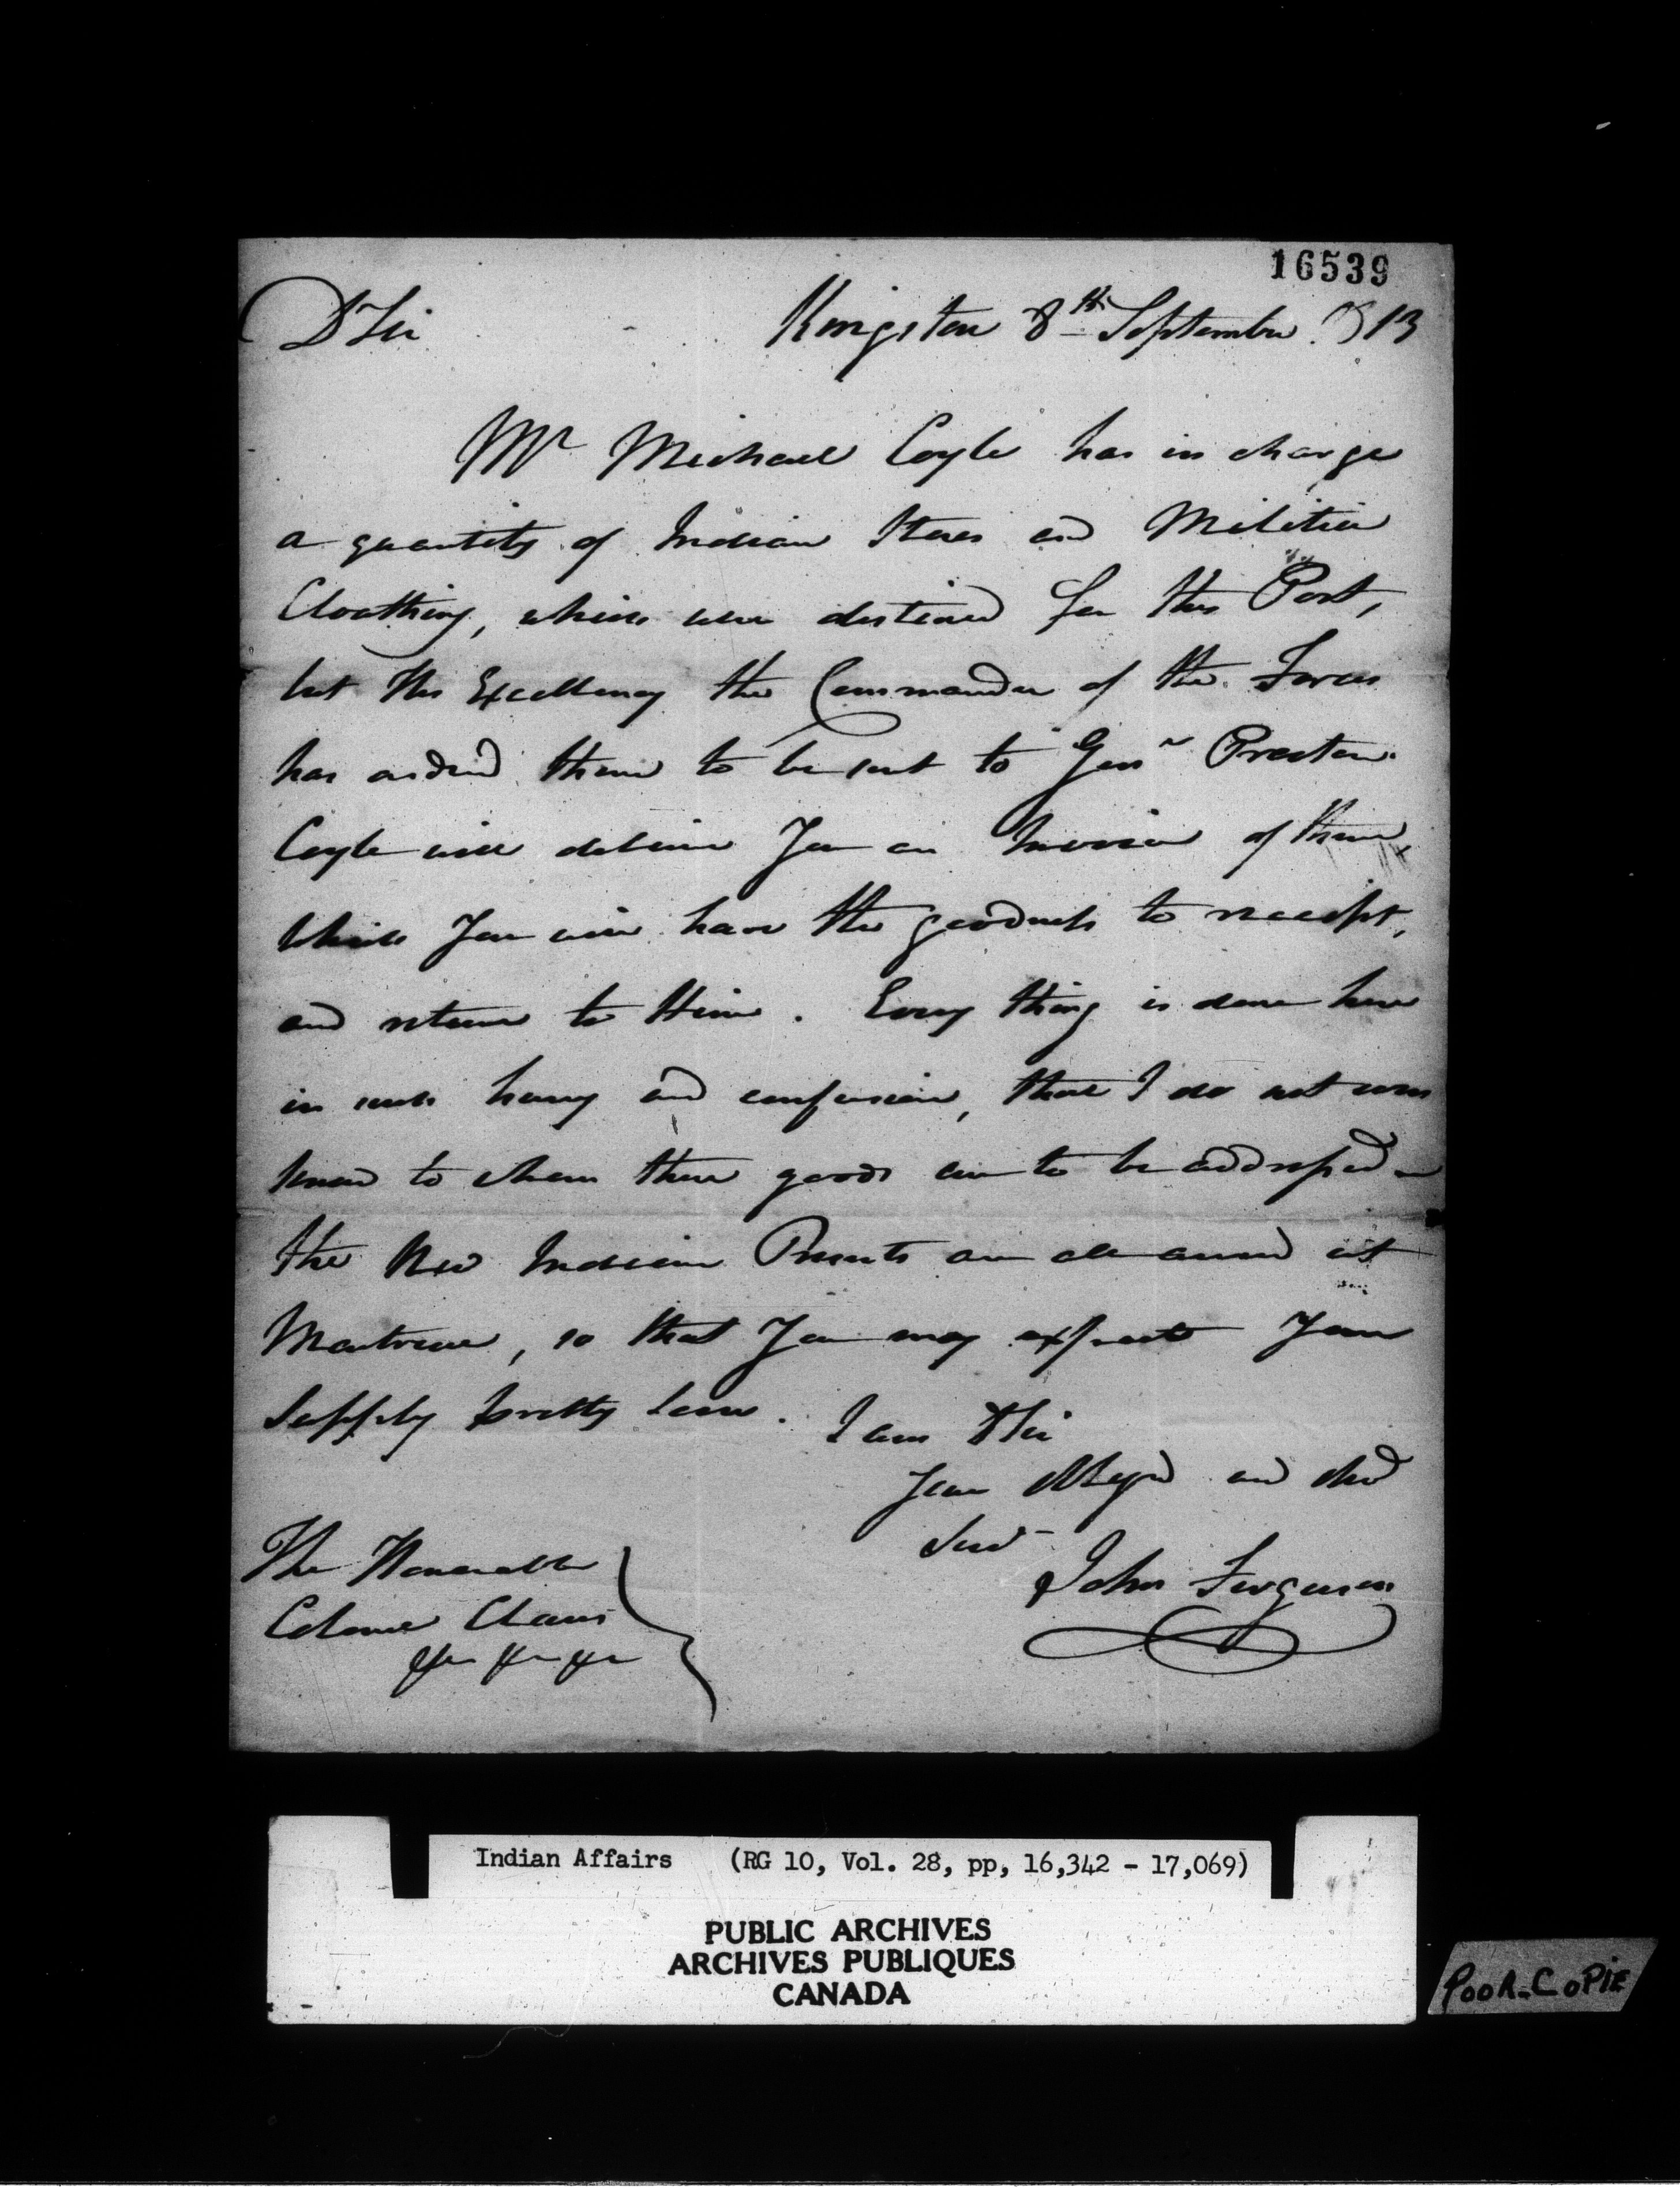 16539
D Sir
Kingston 8th September 1813
Mr Michael Coyle has in charge
a quantity of Indian Stores and Militia
Cloathing, which were destined for this Post,
but His Excellency the Commander of the Forces
has ordered them to be sent to Genl Procter.
Coyle will deliver You an Invoice of them,
which You will have the goodness to receipt,
and return to Him. Every thing is done here
in such hurry and confusion, that I do not even
know to whom these goods are to be addressed
the New Indian Presents are all arrived at
Montreal, so that You may expect Your
Supply pretty soon.
I am D Sir
Your Obliged and Obed
Servt
John Ferguson
The Honorable
Colonel Claus
&c &c &c
Indian Affairs (RG 10, Vol. 28, pp, 16,342 - 17,069)
PUBLIC ARCHIVES
ARCHIVES PUBLIQUES
CANADA
POOR-COPIE